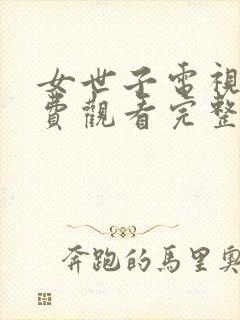 女世子電視
費觀看完整
奔跑的馬里奧